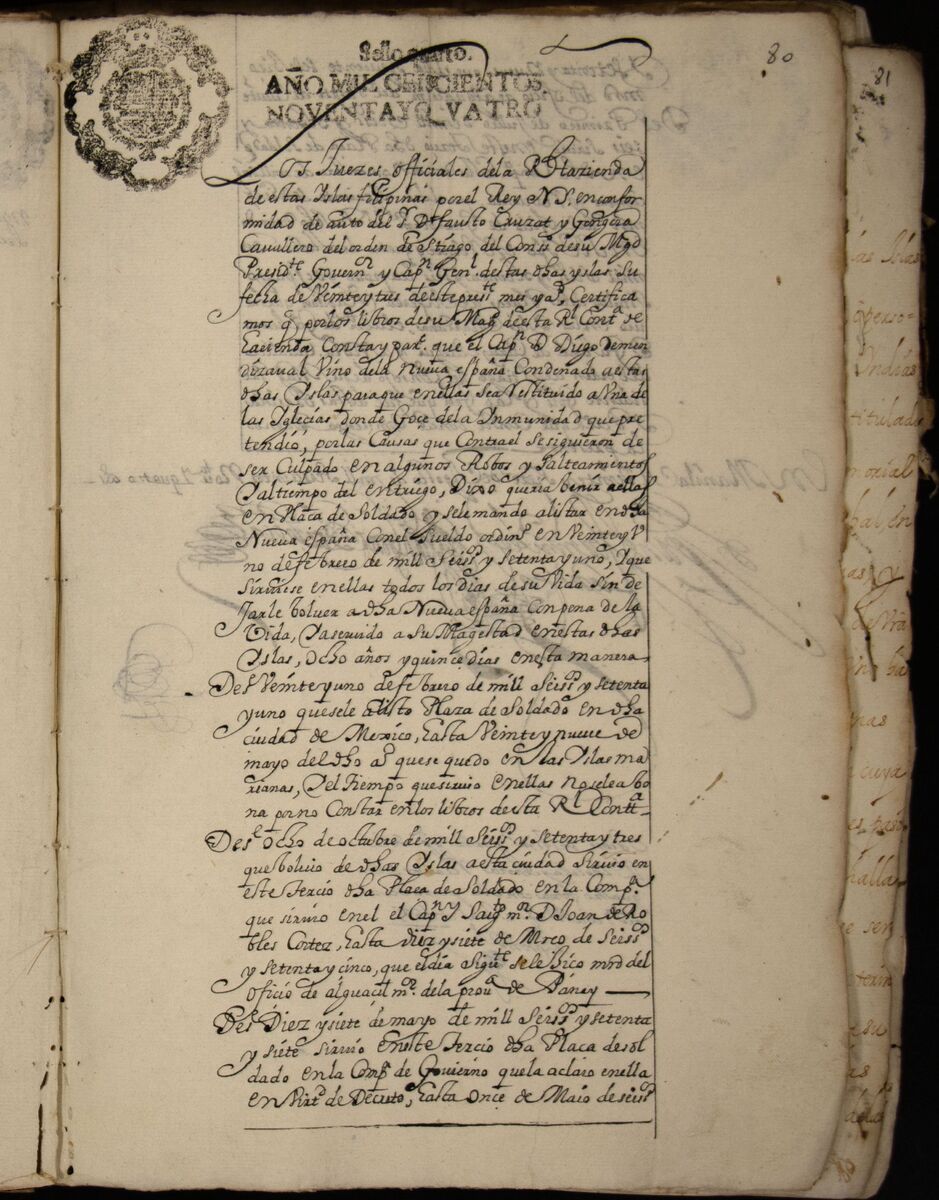 80
Sello quarto.
AÑO MIL CEISCIENTOS,
NOVENTA Y QVATRO
Os Juezes officiales dela Rl Hazienda
de estas Yslas filipinas por el Rey N S. en confor
midad de auto del Sr Dn fausto Cruzat y Gongora
Cavallero del orden de Stiago del Consº de su Magd
Presidte Governr y Capn Genl. destas dhas yslas su
fecha de Veinte y tres de este presste mes y aº, Certifica
mos q por los libros de su Magd de esta Rl Contª de
hacienda Consta y parª. que el Capn D Diego de men
dizaval Vino dela nueva españa Condenado a estas
dhas Yslas para que en ellas sea Restituido a Vna de
las Iglecias donde Goçe dela Inmunidad que pre
tendió, por las Causas que Contra el se siguieron de
ser Culpado en algunos Robos y Salteamientos
Y al tiempo del entriego, Dixo queria benir a ellas
en Plaça de Soldado y se le mando alistar en dha
Nueva españa Con el Sueldo ordinº en Veinte y V
no de febrero de mill Seisº y setenta y uno, Y que
sirviese en ellas todos los dias de su Vida sin de
Jarle bolver a dha Nueva españa Con pena de la
Vida, Ya servido a Su Magestad en estas dhas
Yslas, Ocho años y quince dias en esta manera
Desº Veinte y uno de febrero de mill Seisº y setenta
y uno que se le alisto Plaza de Soldado en dha
ciudad de Mexico, hasta Veinte y nueve de
mayo del dho aº que se quedo en las Yslas ma
rianas, Y el tiempo que sirvio en ellas no se le abo
na por no Constar en los libros de esta Rl Conttª
Desº Ocho de octubre de mill Seisº y setenta y tres
que bolvio de dhas Yslas a esta ciudad sirvio en
este tercio dha Plaça de Soldado en la Compª.
que sirvio en el el Capn Y Sargto mr. D Joan de Ro
bles Cortez, hasta diez y siete de Mrco de Seisº
y setenta y cinco, que el dia Sigute se le hiço mrd del
officio de alguacil mr. de la provª de Panay
Desº Diez y siete de mayo de mill Seisº y setenta
y siete sirvio en este tercio dha Placa de sol
dado en la Compª de Govierno que la aclaro en ella
en Virtd de Decreto, hasta Once de Maio de seisº
81